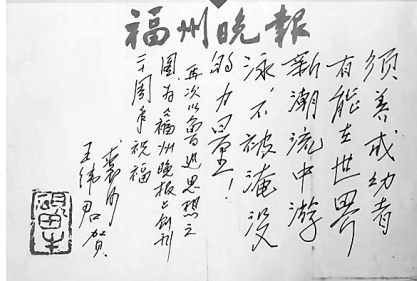 福州晚報
须善成功者
有能在世界
新潮流中游
泳，不被淹没
的力量！
再次以鲁迅思想之
图为《福州晚报》创刊
三十周年祝福
王纬君贺